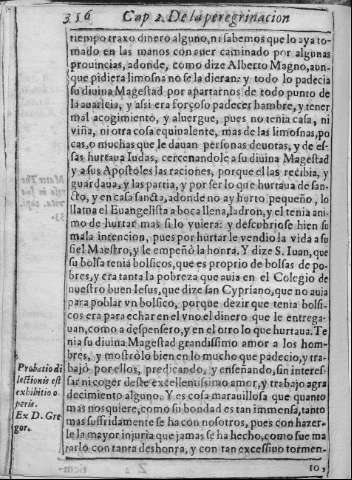 356 Cap 2. De la peregrinacion
tiempo traxo dinero alguno, ni sabemos que lo aya to-
mado en las manos con auer caminado por algunas
prouincias, adonde, como dize Alberto Magno, aun-
que pidiera limosna no se la dieran: y todo lo padecia
su diuina Magestad por apartarnos de todo punto de
la auaricia, y assi era forçoso padecer hambre, y tener
mal acogimiento, y aluergue, pues no tenia casa, ni
viña, ni otra cosa equiualente, mas de las limosnas, po
cas, o muchas que le dauan personas deuotas, y de es-
sas hurtaua Iudas, cercenandole a su diuina Magestad
y a sus Apostoles las raciones, porque el las recibia, y
guardaua, y las partia, y por ser lo que hurtaua de san-
cto, y en casa sancta, adonde no ay hurto pequeño, lo
llama el Euangelista a boca llena, ladron, y el tenia ani-
mo de hurtar mas si lo vuiera: y descubriose bien su
mala intencion, pues por hurtar le vendio la vida a su
fiel Maestro, y le empeñò la honra. Y dize S. Iuan, que
su bolsa tenia bolsicos, que es proprio de bolsas de po-
bres, y era tanta la pobreza que auia en el Colegio de
nuestro buen Iesus, que dize san Cypriano, que no auia
para poblar vn bolsico, porque dezir que tenia bolsi-
cos era para echar en el vno el dinero que le entrega-
uan, como a despensero, y en el otro lo que hurtaua. Te
nia su diuina Magestad grandissimo amor a los hom-
bres, y mostrolo bien en lo mucho que padecio, y tra-
bajò por ellos, predicando, y enseñando, sin interes-
sar ni coger deste excellentissimo amor, y trabajo agra
decimiento alguno. Y es cosa marauillosa que quanto
mas nos quiere, como su bondad es tan immensa, tanto
mas suffridamente se ha con nosotros, pues con hazer-
le la mayor injuria que jamas se ha hecho, como fue ma
tarlo con tanta deshonra, y con tan excessiuo tormen-
to,
Probatio di
lectionis est
exhibitio o
peris.
Ex D. Gre
gor.